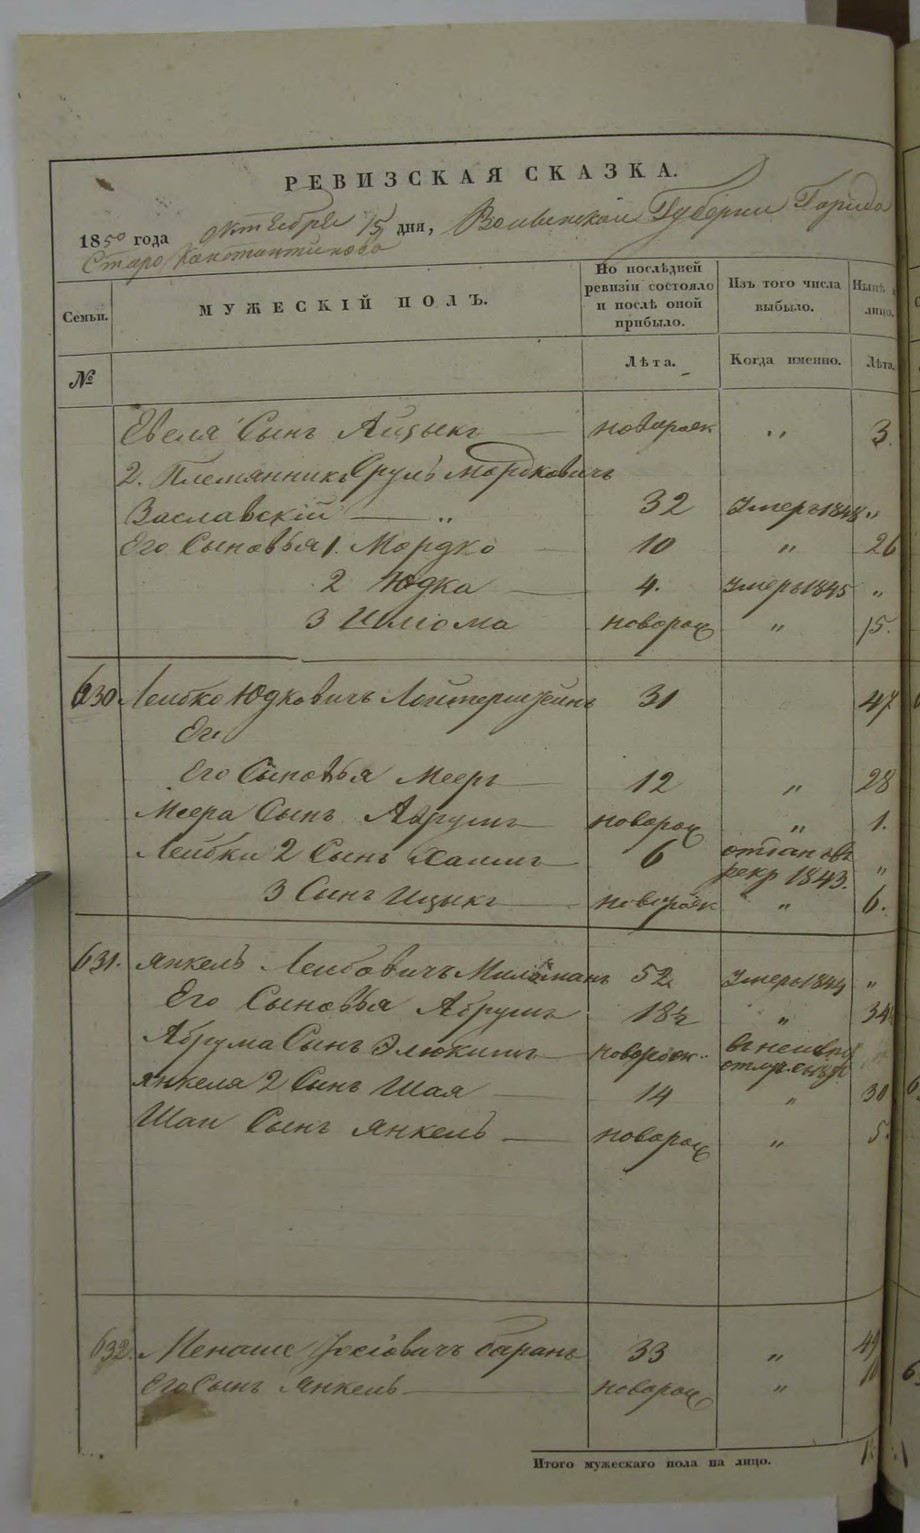 РЕВИЗСКАЯ СКАЗКА.
1850 года октября 15 дня, Волынской Губернии Города
Старо Константинова
Семьи. МУЖЕСКІЙ ПОЛЪ. По послѣдней ревизіи состояло и послѣ оной прибыло. Изъ того числа выбыло. Нынѣ лицо.
№ Лѣта. Когда именно. Лѣта.
Евеля Сынъ Айзыкъ новорож „ 3.
2. Племянникъ Сруль Мордковичъ
Заславскій „ 32 Умеръ 1848 „
Его Сыновья 1. Мордко 10 „ 26
2 Юдка 4. Умеръ 1845 „
3 Шліома новорож „ 15.
630 Лейбко Юдковичъ Лойтерштейнъ 31 47
Ег
Его Сыновья Мееръ 12 „ 28
Меера Сынъ Абрумъ новорож „ 1.
Лейбки 2 Сынъ Хаимъ 6 отданъ въ рекр 1843. „
3 Сынъ Ицыкъ новорож „ 6.
631. Янкель Лейбовичъ Мильманъ 52 Умеръ 1844 „
Его Сыновья Абрумъ 18½ „ 34
Абрума Сынъ Элюкимъ новорож
Янкеля 2 Сынъ Шая 14 „ 30
Шаи Сынъ Янкель новорож „ 5.
632. Менаше Іосіовичъ Баранъ 33 „ 49
Его Сынъ Янкель новорож „
Итого мужескаго пола на лицо.